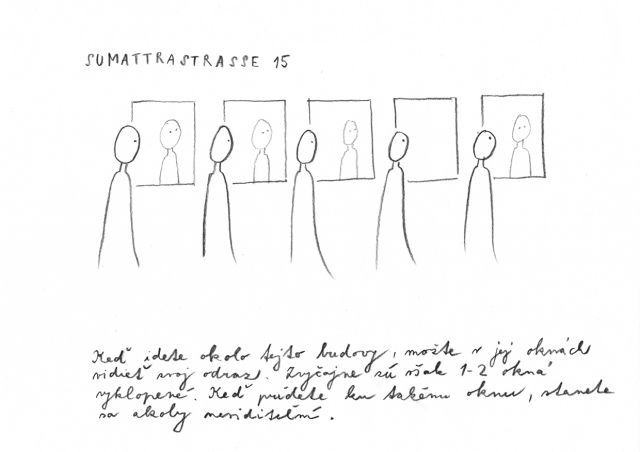 SUMATTRASTRASSE 15
Keď idete okolo tejto budovy, možte v jej oknách
vidieť svoj odraz. Zvyčajne sú však 1-2 okná
vyklopené. Keď prídete ku takému oknu, stanete
sa akoby neviditeľní.